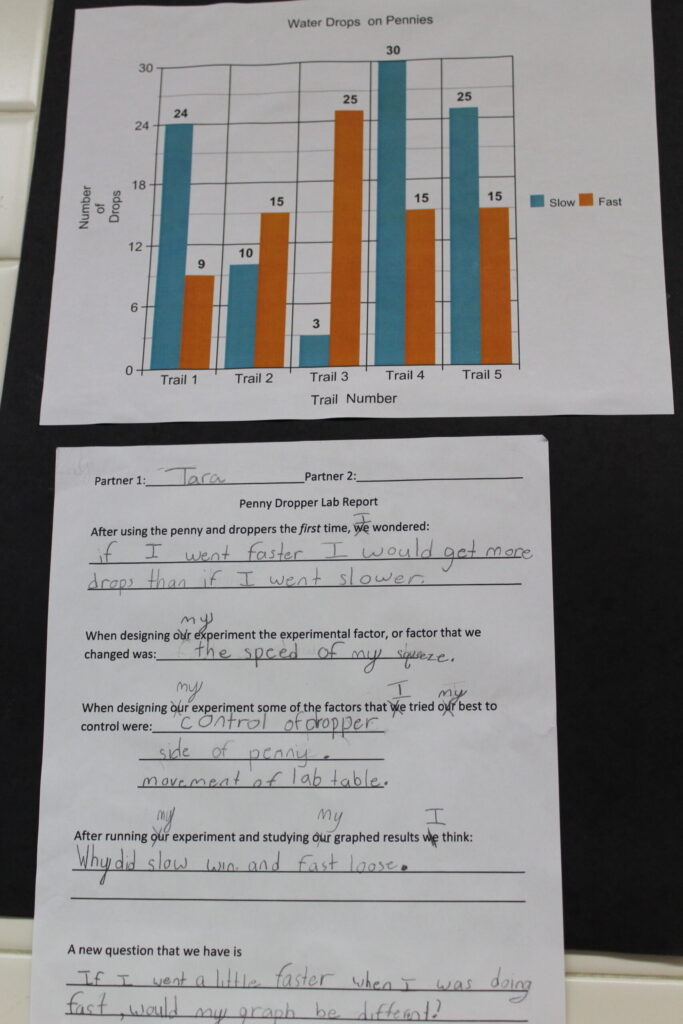 Water Drops on Pennies
30
24
18
12
6
0
Number
of
Drops
24
9
10
15
3
25
30
15
25
15
Slow Fast
Trail 1 Trail 2 Trail 3 Trail 4 Trail 5
Trail Number
Partner 1: Tara Partner 2:
Penny Dropper Lab Report
I
After using the penny and droppers the first time, we wondered:
if I went faster I would get more
drops than if I went slower.
my
When designing our experiment the experimental factor, or factor that we
changed was: the speed of my squeze.
my I my
When designing our experiment some of the factors that we tried our best to
control were: control of dropper
side of penny.
movement of lab table.
my my I
After running our experiment and studying our graphed results we think:
Why did slow win and fast loose.
A new question that we have is
If I went a little faster when I was doing
fast, would my graph be different?